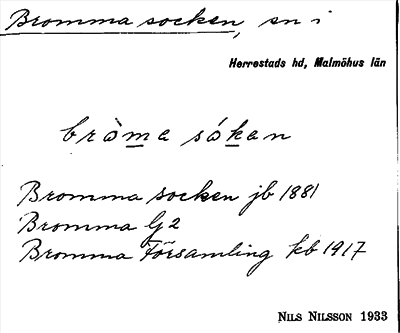 Bromma socken, sn i
Herrestads hd, Malmöhus län
bròma sókan
Bromma socken jb 1881
Bromma Gj 2
Bromma Församling kb 1917
NILS NILSSON 1933